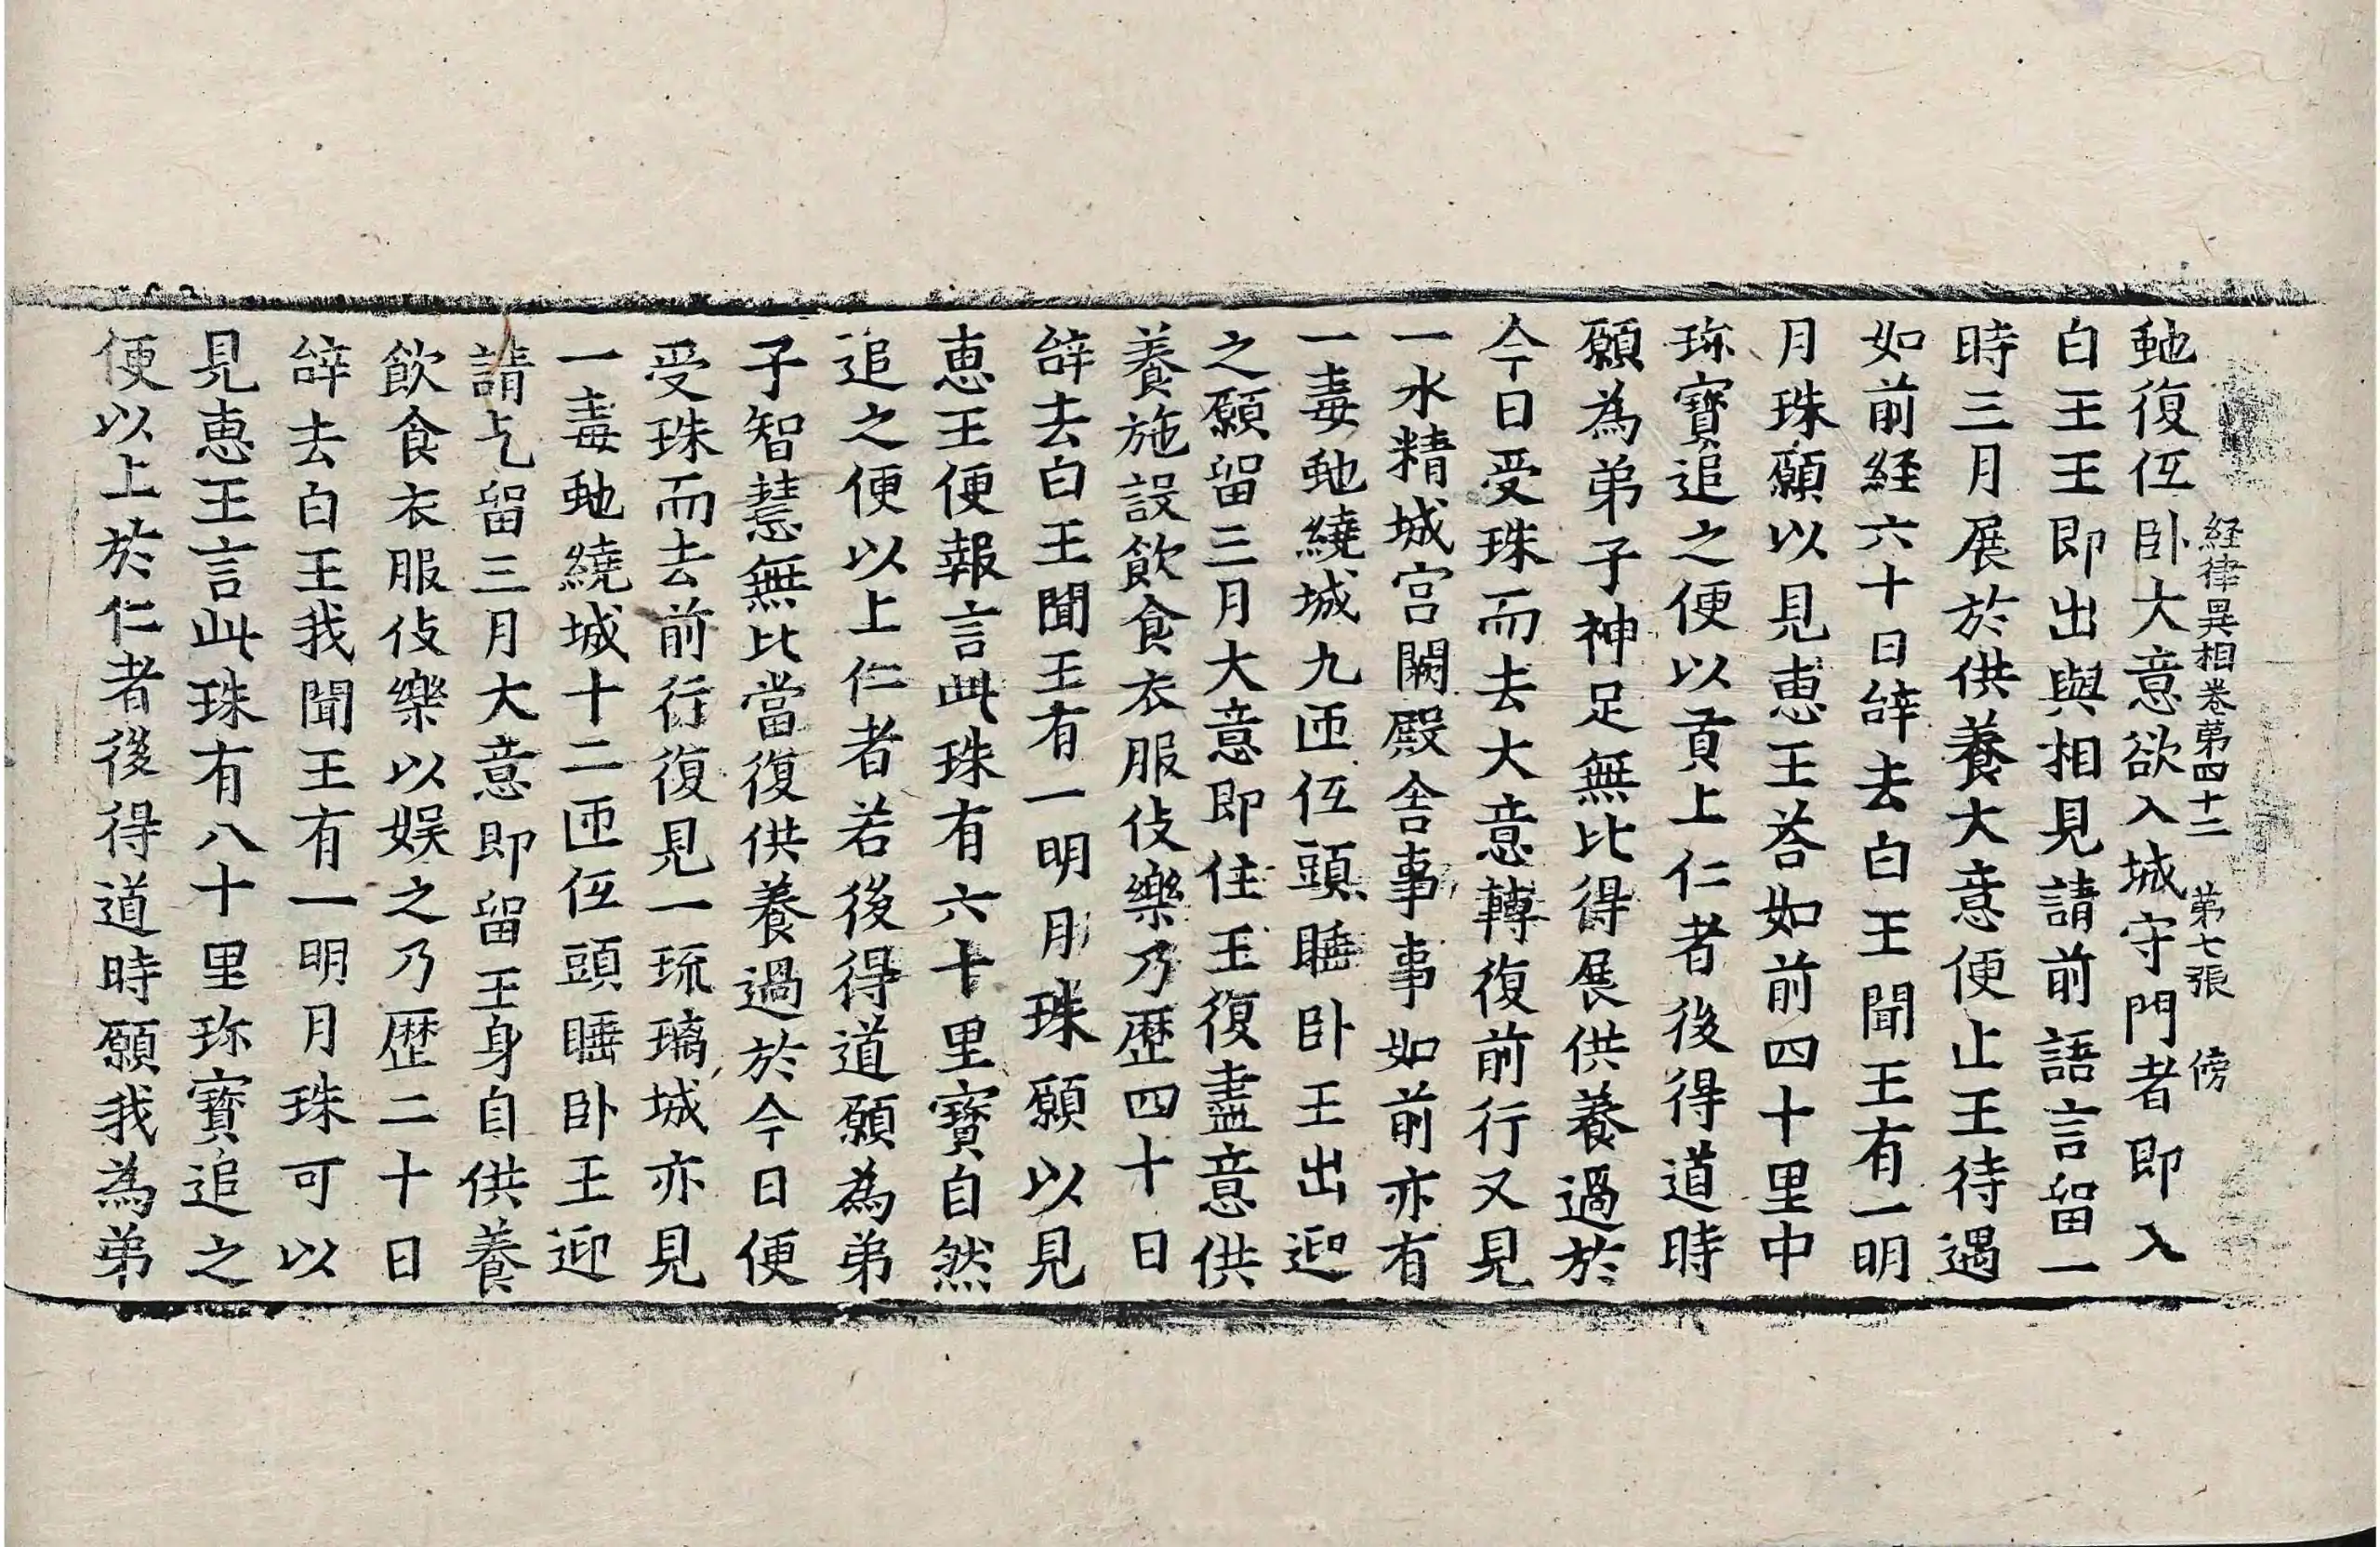 経律異相卷第四十二 第七張 傍
虵復仾卧大意欲入城守門者即入
白王王即出與相見請前語言留一
時三月展於供養大意便止王待遇
如前経六十日辝去白王聞王有一明
月珠願以見恵王荅如前四十里中
珎寶追之便以貢上仁者後得道時
願為弟子神足無比得展供養過於
今日受珠而去大意轉復前行又見
一水精城宫闕殿舍事事如前亦有
一毒虵繞城九迊仾頭睡卧王出迎
之願留三月大意即住王復盡意供
養施設飲食衣服伎樂乃歴四十日
辝去白王聞王有一明月珠願以見
恵王便報言此珠有六十里寶自然
追之便以上仁者若後得道願為弟
子智慧無比當復供養過於今日便
受珠而去前行復見一琉璃城亦見
一毒虵繞城十二迊仾頭睡卧王迎
請乞留三月大意即留王身自供養
飲食衣服伎樂以娱之乃歴二十日
辝去白王我聞王有一明月珠可以
見恵王言此珠有八十里珎寶追之
便以上於仁者後得道時願我為弟